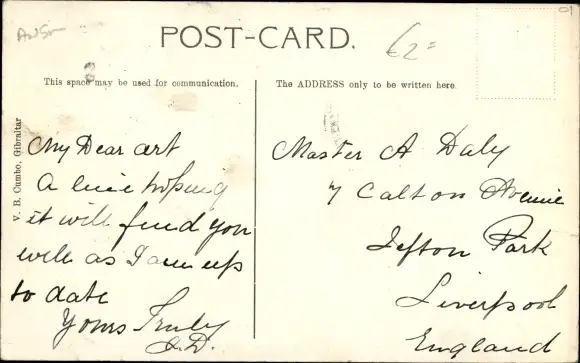 POST-CARD.
This space may be used for communication.
The ADDRESS only to be written here.
V. B. Cumbo, Gibraltar
My Dear art
A line hoping
it will find you
well as I am up
to date
Yours Truly
J.D.
Master A Daly
7 Calton Avenue
Sefton Park
Liverpool
England
£2=